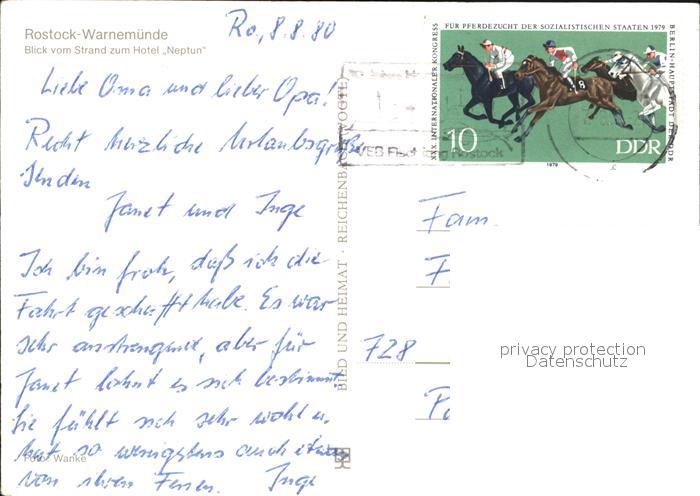 Rostock-Warnemünde
Blick vom Strand zum Hotel „Neptun“
Ro, 8.8.80
Liebe Oma und lieber Opa!
Recht herzliche Urlaubsgrüße
senden
Janet und Inge
Ich bin froh, daß ich die
Fahrt geschafft habe. Es war
sehr anstrengend, aber für
Janet lohnt es sich bestimmt.
Sie fühlt sich sehr wohl u.
hat so wenigstens auch etwas
von ihren Ferien. Inge
Foto: Wanke
BILD UND HEIMAT · REICHENBACH (VOGTL)
XXX. INTERNATIONALER KONGRESS
FÜR PFERDEZUCHT DER SOZIALISTISCHEN STAATEN 1979
BERLIN-HAUPTSTADT DER DDR
8
10
DDR
1979
VEB Rostock
Fam.
F
728
P
privacy protection
Datenschutz